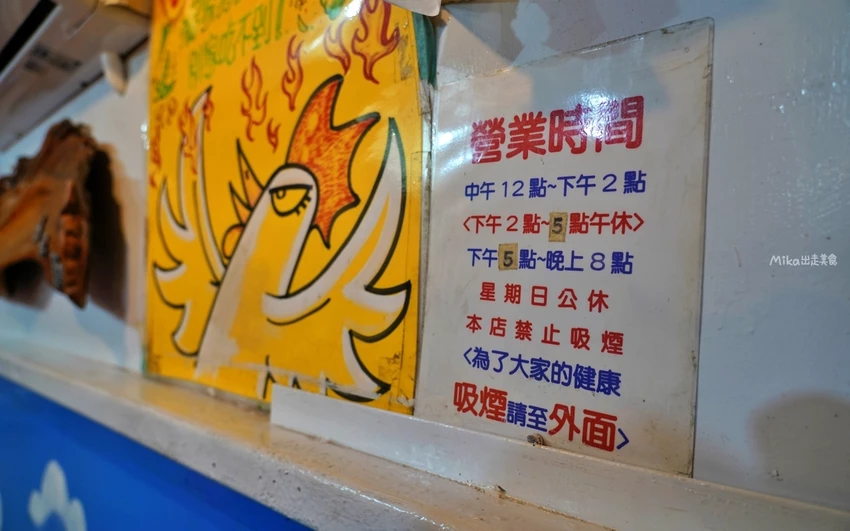 吃不到!
營業時間
中午12點~下午2點
<下午2點~5點午休>
下午5點~晚上8點
星期日公休
本店禁止吸煙
<為了大家的健康
吸煙請至外面>
Mika出走美食